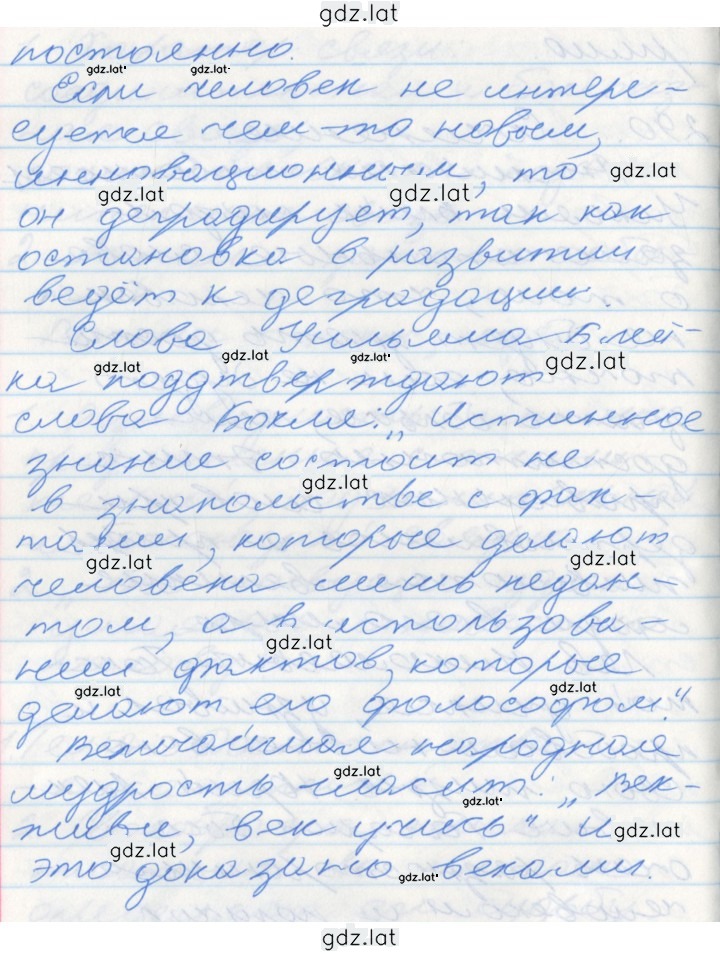 gdz.lat
постоянно.
gdz.lat gdz.lat
Если человек не интере-
суется чем-то новым,
инновационным, то gdz.lat
gdz.lat gdz.lat
он деградирует, так как
остановка в развитии
ведёт к деградации.
Слова Уильяма Блей-
gdz.lat gdz.lat gdz.lat gdz.lat
ка поддтверждают
слова Бокля: „Истинное
знание состоит не
gdz.lat
в знакомстве с фак-
тами, которые делают
gdz.lat gdz.lat
человека лишь педан-
том, а в использова-
gdz.lat
нии фактов, которые
gdz.lat gdz.lat
делают его фолософом."
Величайшая народная
gdz.lat
мудрость гласит: „Век-
gdz.lat
живи, век учись" И gdz.lat
gdz.lat
это доказано веками.
gdz.lat
gdz.lat